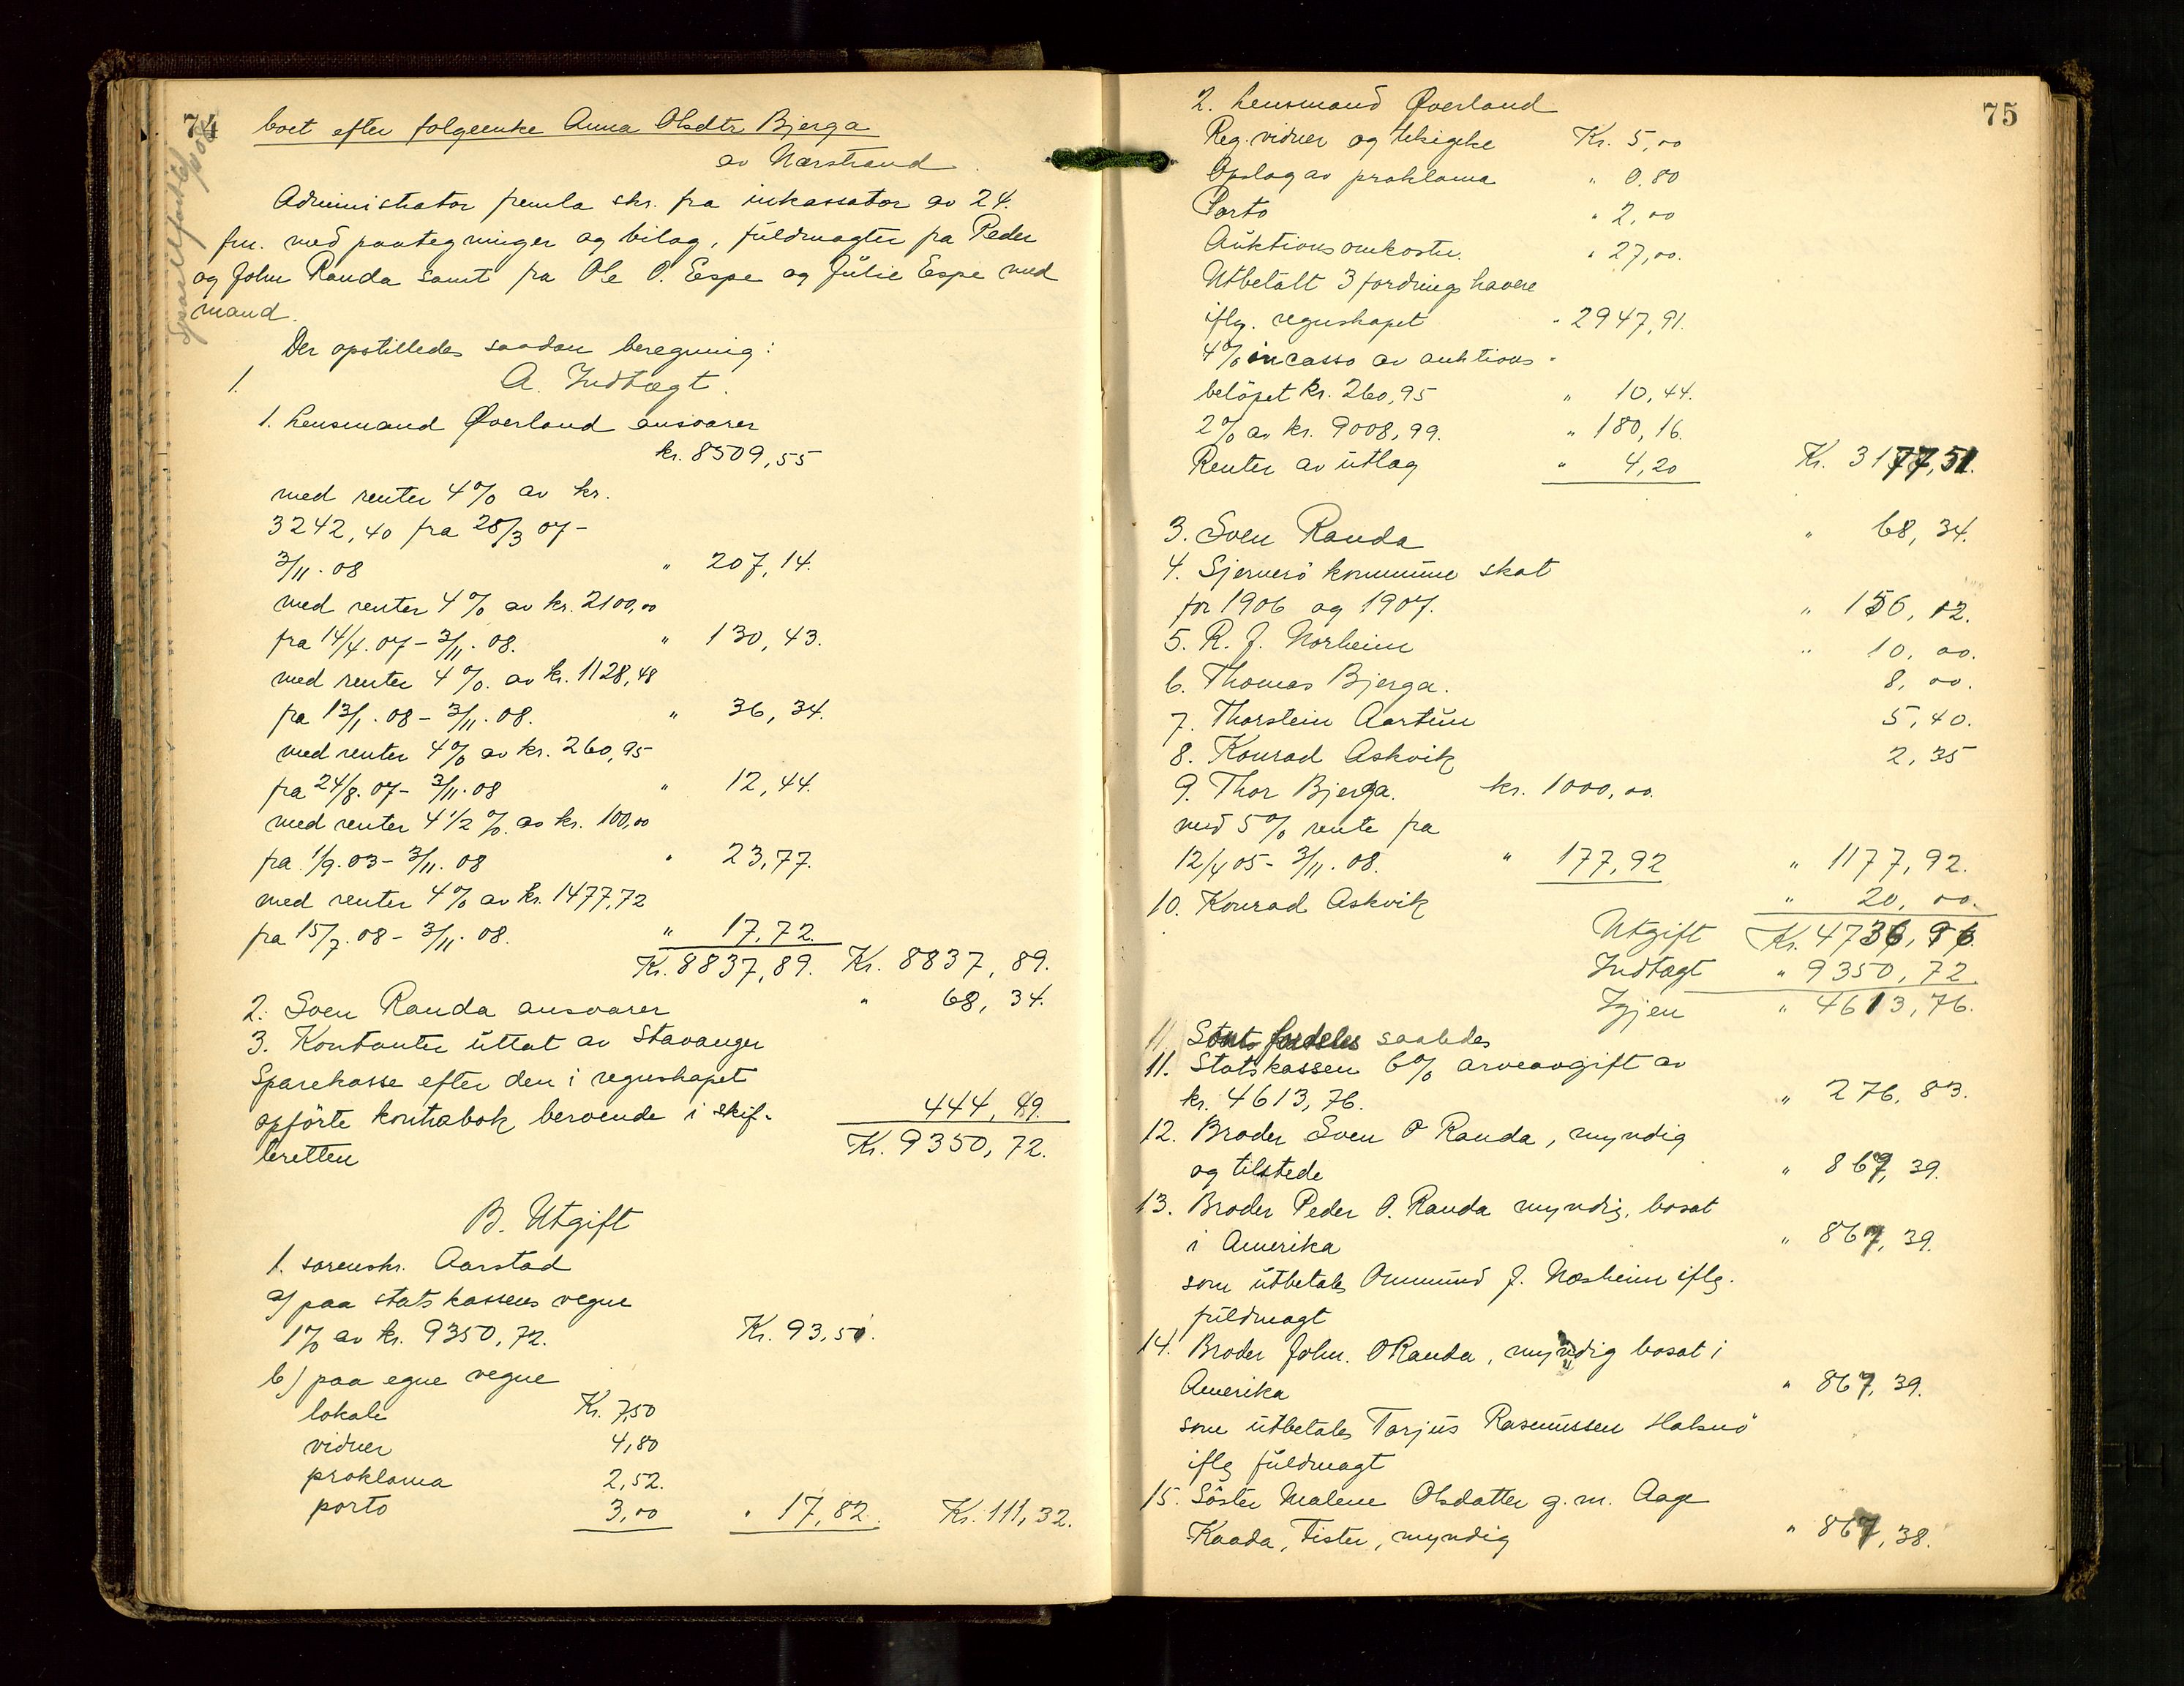 74
boet efter folgeenke Anna Olsdtr Bjerga
av Nærstrand
Administrator fremla skr. fra inkassator av 24.
frm. med paategninger og bilag, fuldmagter fra Peder
og John Randa samt fra Ole O. Espe og Julie Espe med
mand.
Der opstilledes saadan beregning:
1. A. Indtægt.
1. Lensmand Qverland ansvarer
kr. 8509,55
med renter 4% av kr.
3242,40 fra 28/3 07-
3/11.08 " 207,14.
med renter 4% av kr. 2100,00
fra 14/4.07-3/11.08. " 130,43.
med renter 4%. av kr. 1128,48
fra 13/1.08-3/11.08. " 36,34.
med renter 4% av kr. 260,95
fra 24/8.07-3/11.08 " 12,44.
med renter 4 1/2 %. av kr. 100,00
fra 1/9.03-3/11.08 " 23,77.
med renter 4% av kr. 1477,72
fra 15/7.08-3/11.08. " 17,72.
Kr. 8837,89. Kr. 8837,89.
2. Sven Randa ansvarer " 68,34.
3. Kontanter uttat av Stavanger
Sparekasse efter den i regnskapet
opførte kontrabok beroende i skif-
teretten 444,49.
Kr. 9350,72.
B. Utgift
1. sorenskr. Aarstad
a) paa statskassens vegne
1% av kr. 9350,72. Kr. 93,50.
b) paa egne vegne
lokale Kr. 7,50
vidner 4,80
proklama 2,52.
porto 3,00 " 17,82. Kr. 111,32.
75
2. Lensmand Qverland
Reg. vidner og tilsigelse Kr. 5,00
Opslag av proklama " 0.80
Porto " 2,00
Auktionsomkostn. " 27,00.
Utbetalt 3 fordringshavere
iflg. regnskapet " 2947,91.
4% incasso av auktions-
beløpet kr. 260,95 " 10,44.
2% av kr. 9008,99. " 180,16.
Renter av utlæg " 4,20 Kr. 3177,51.
3. Sven Randa " 68,34.
4. Sjernerø kommune skat
for 1906 og 1907. " 156,12.
5. R. J. Norheim " 10,00.
6. Thomas Bjerga. 8,00.
7. Thorstein Aartun 5,40.
8. Konrad Askvik 2,35
9. Thor Bjerga. kr. 1000,00.
med 5% rente fra
12/4 05-3/11.08. " 177,92 " 1177,92.
10. Konrad Askvik " 20,00.
Utgift Kr. 4736,96.
Indtægt " 9350,72
Igjen " 4613,76.
11 saaledes
11. Statskassen 6% arveavgift av
kr. 4613,76. " 276,83.
12. Broder Sven O Randa, myndig
og tilstede " 867,39.
13. Broder Peder O. Randa myndig, bosat
i Amerika " 867,39.
som utbetales Ommund J. Næsheim iflg.
fuldmagt
14. Broder John. O Randa, myndig bosat i
Amerika " 867,39.
som utbetales Tarjus Rasmussen Halsnø
iflg fuldmagt
15. Søster Malene Olsdatter g.m. Aage
Kaada, Fister, myndig " 867,38.